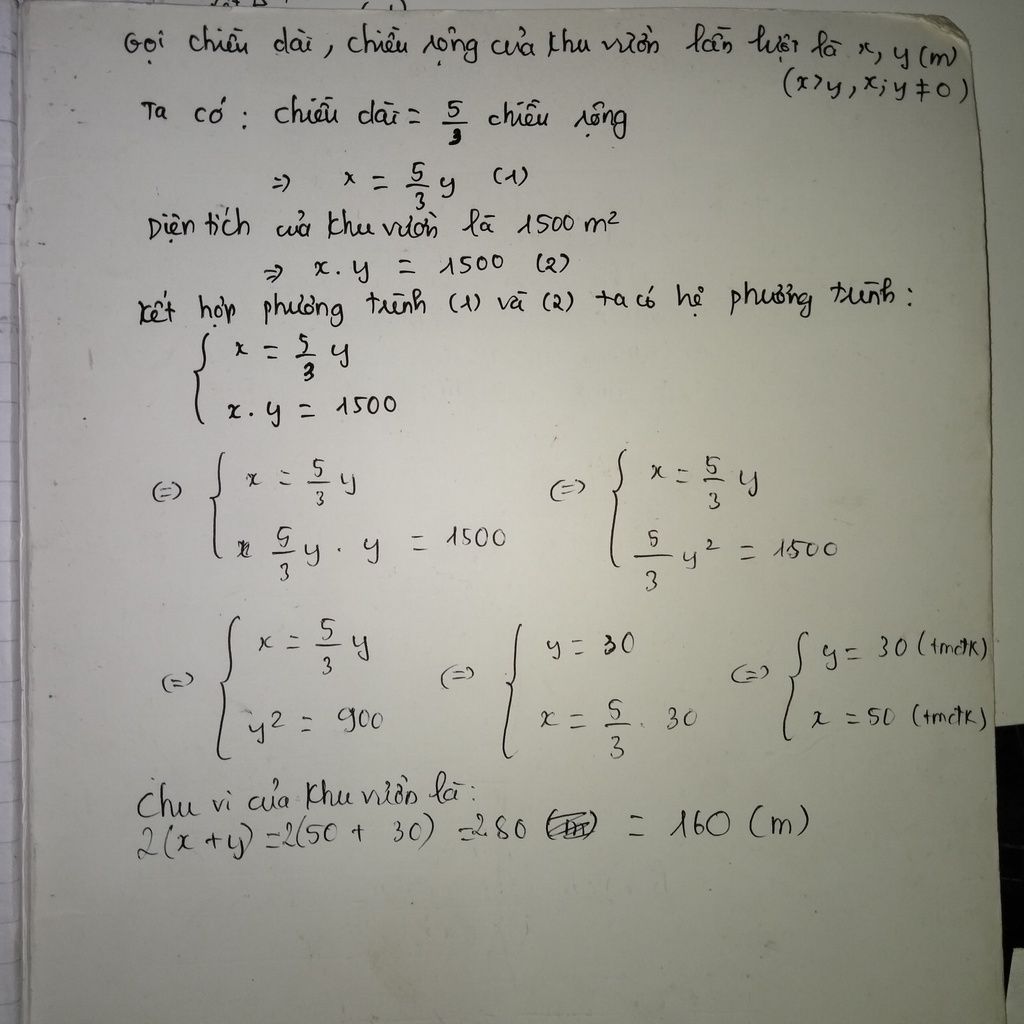 Gọi chiều dài, chiều rộng của khu vườn lần lượt là x, y (m)
(x>y, x; y ≠ 0)
Ta có: chiều dài = 5/3 chiều rộng
=> x = 5/3 y (1)
Diện tích của khu vườn là 1500 m²
=> x . y = 1500 (2)
Kết hợp phương trình (1) và (2) ta có hệ phương trình:
{ x = 5/3 y
x . y = 1500
(=) { x = 5/3 y (=) { x = 5/3 y
5/3 y . y = 1500 5/3 y² = 1500
(=) { x = 5/3 y (=) { y = 30 (=) { y = 30 (tmđk)
y² = 900 x = 5/3 . 30 x = 50 (tmđk)
Chu vi của khu vườn là:
2(x + y) = 2(50 + 30) = 2 80 = 160 (m)